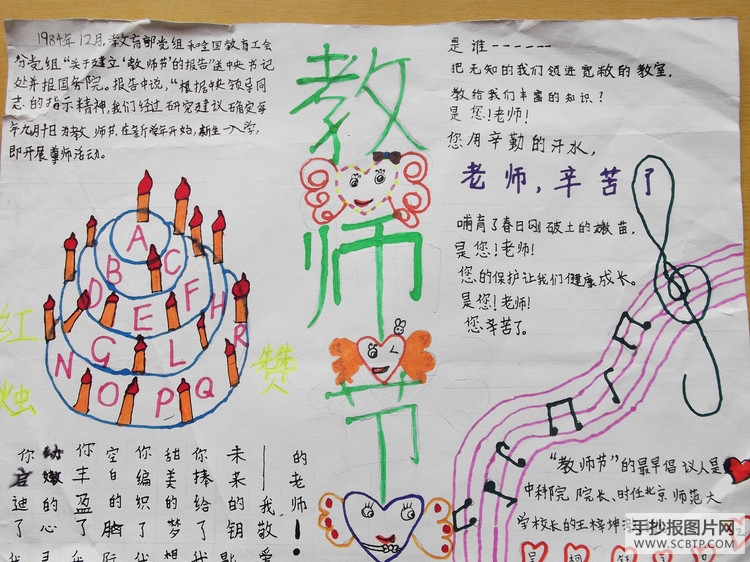 1984年12月,教育部党组和全国教育工会
分党组“关于建立‘教师节’的报告”送中央书记
处并报国务院。报告中说,“根据中央领导同
志的指示精神,我们经过研究建议确定每
年九月十日为教师节,在新学年开始,新生入学,
即开展尊师活动。
教师节
是谁------
把无知的我们领进宽敞的教室,
教给我们丰富的知识?
是您!老师!
您用辛勤的汗水,
老师,辛苦了
哺育了春日刚破土的嫩苗,
是您!老师!
您的保护让我们健康成长。
是您!老师!
您辛苦了。
A
B C
D E F H
N G L R
O P Q
红烛
赞
的老师!
未来——我敬爱
你捧给的钥匙
甜美的梦
你编织了
空白的脑
你丰盈了
幼嫩的心
你启迪了
“教师节”的最早倡议人是
中科院院长、时任北京师范大
学校长的王梓坤
手抄报图片网
WWW.SCBTP.COM